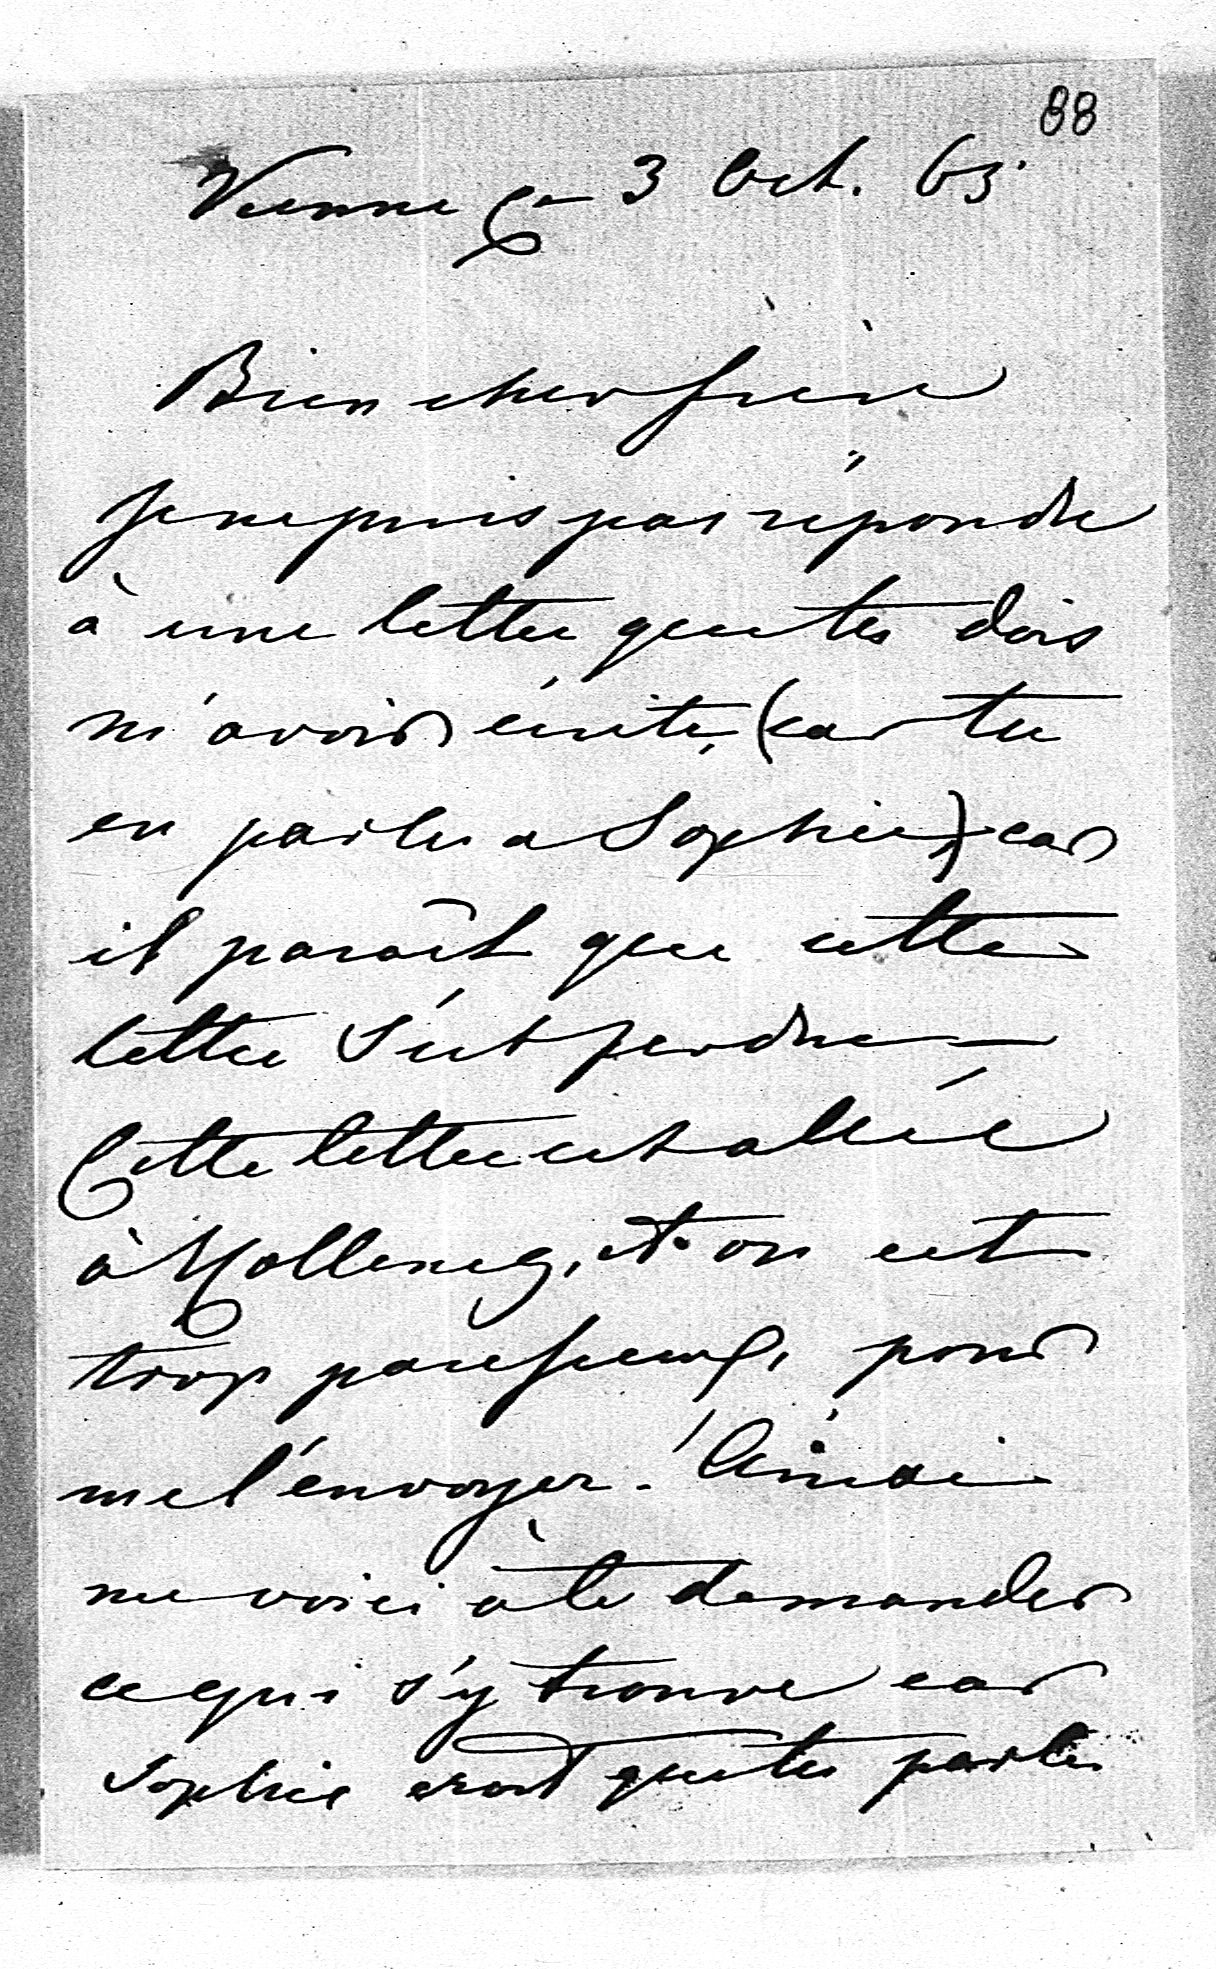 88
Vienne ce 3 Oct. 63.
Bien cher frère
Je ne puis pas répondre
à une lettre que tu dois
m'avoir écrite, (car tu
en parles a Sophie,) car
il paraît que cette
lettre s'est perdue —
Cette lettre est allée
à Hollenegg, et on est
trop paresseux, pour
me l'envoyer. Ainsi
me voici à te demander
ce qui s'y trouve car
Sophie croit que tu parles